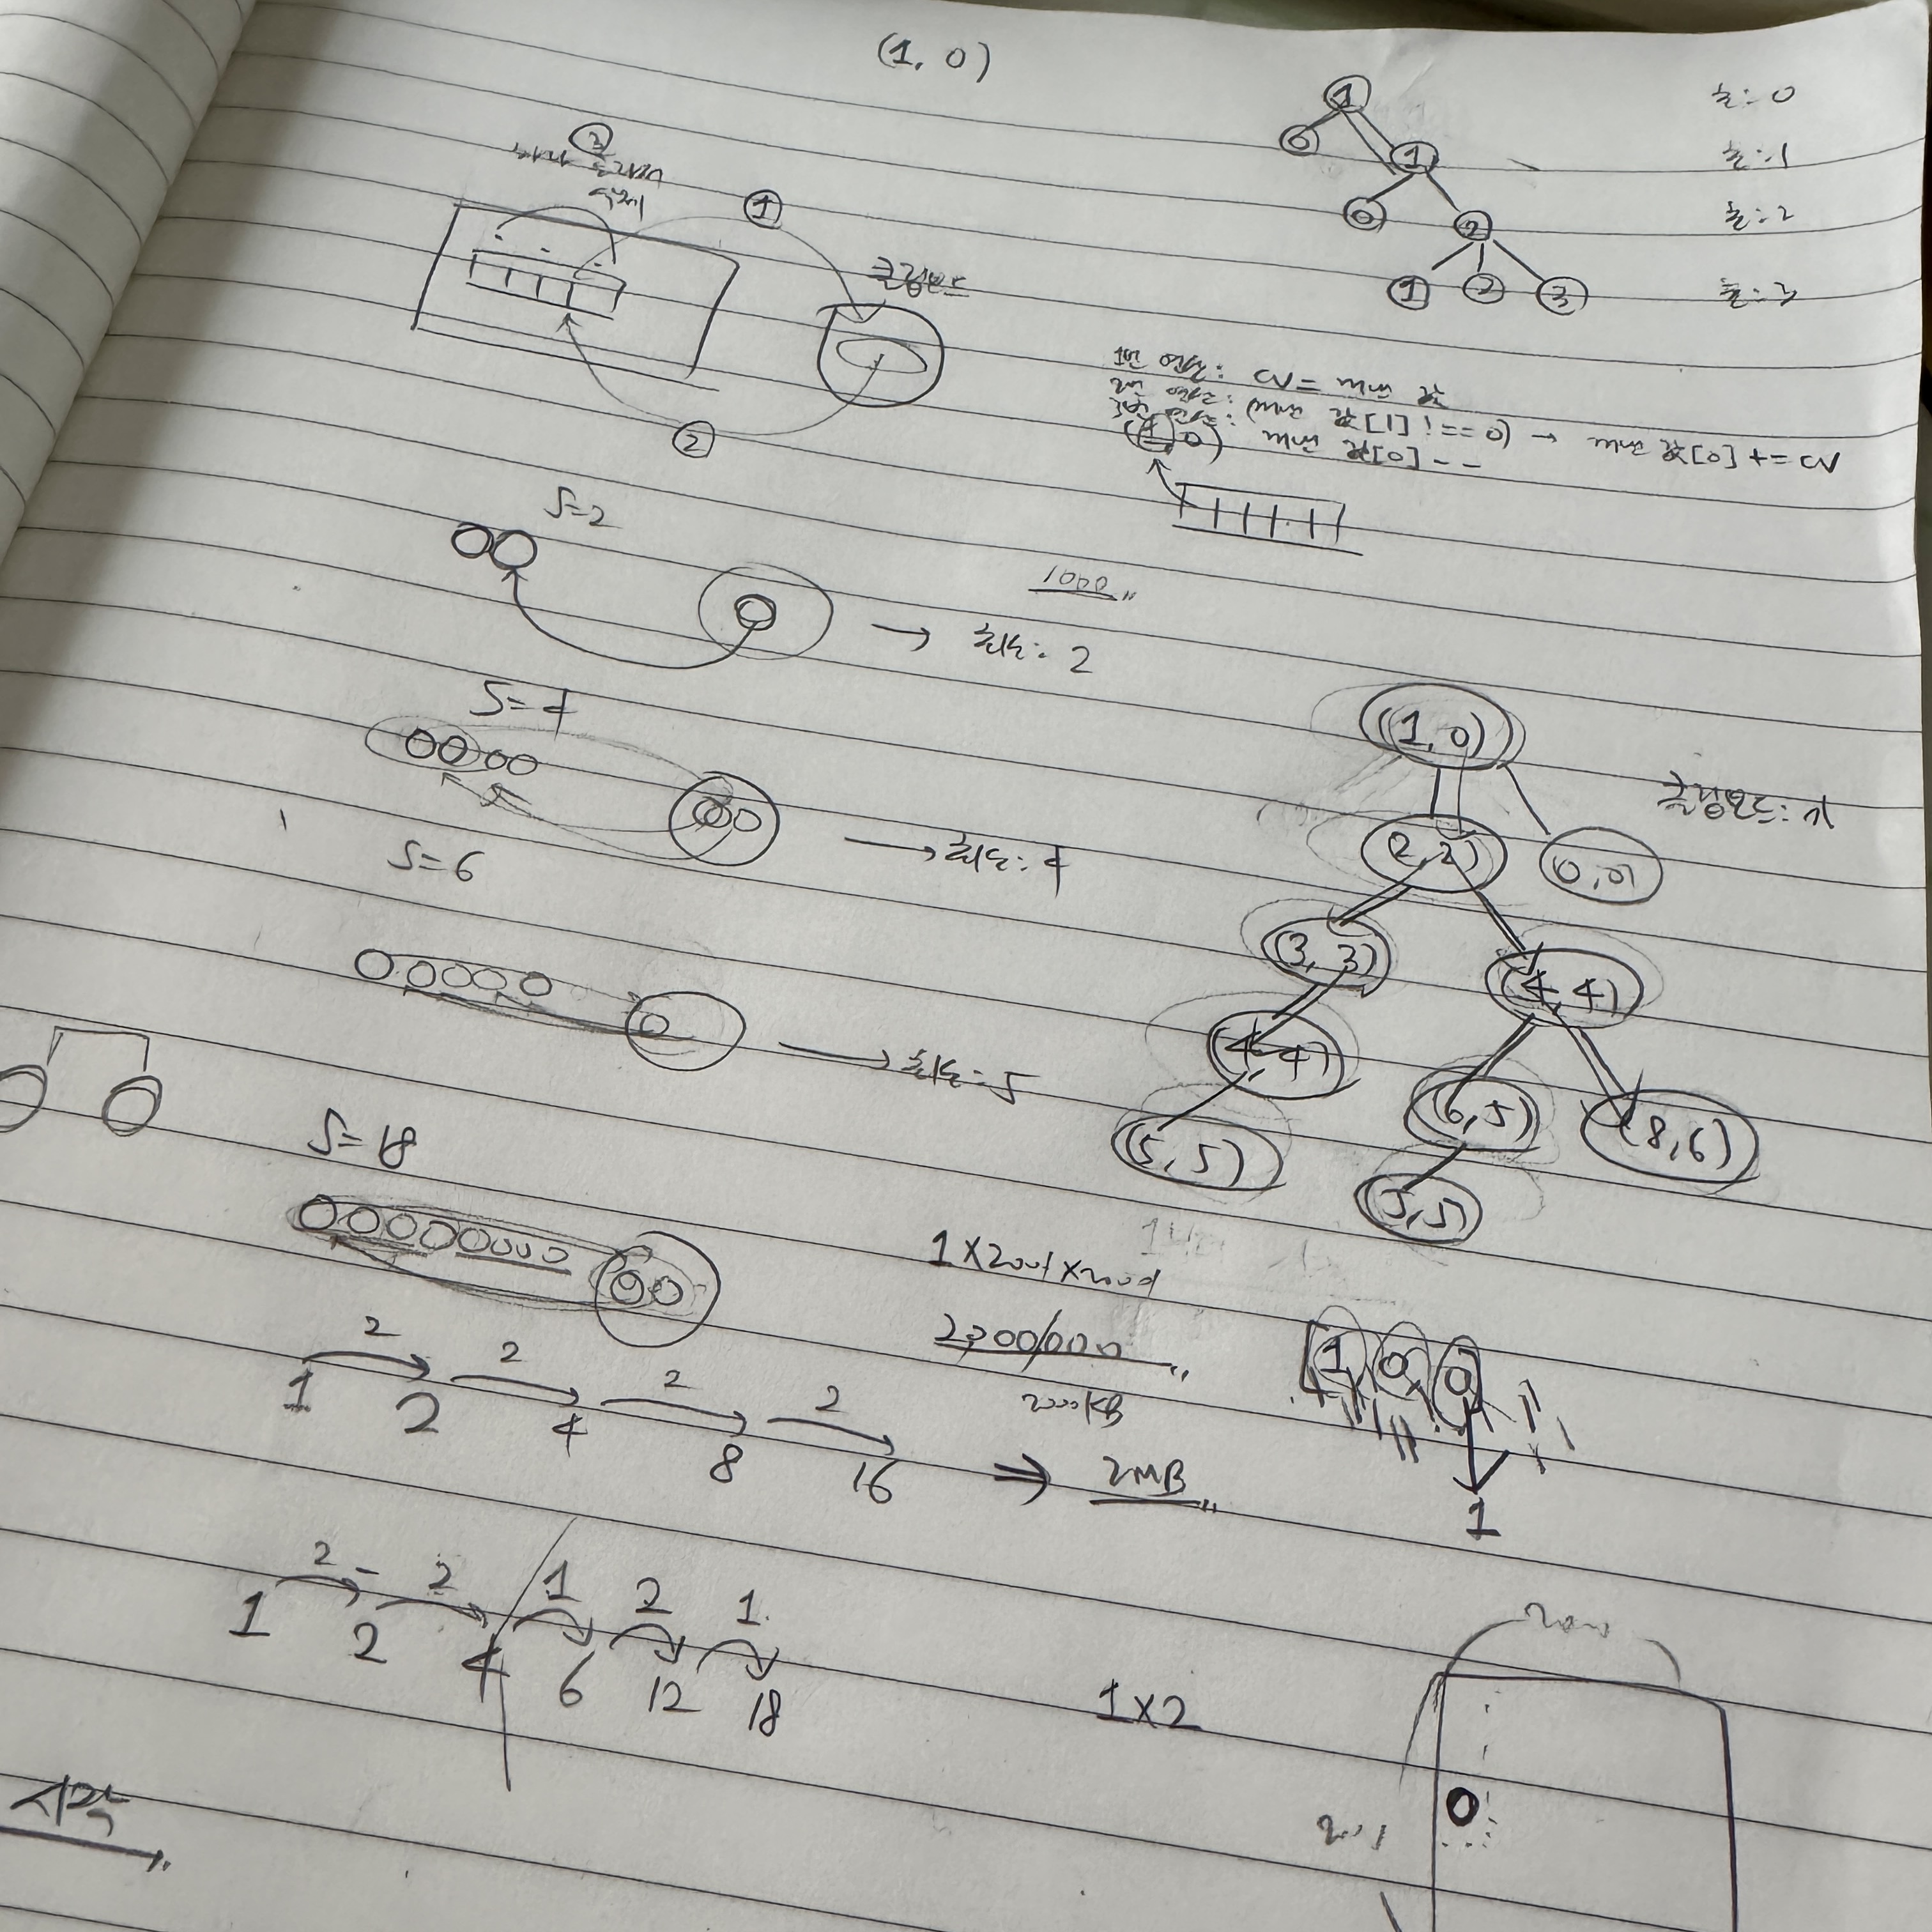 (1, 0)
1
0 1
0 2
1 2 3
초: 0
초: 1
초: 2
초: 3
③
하나
삭제
①
클립보드
②
1번 연산: CV = 화면 값
2번 연산: (화면 값[1] !== 0) → 화면 값[0] += CV
3번 연산: 화면 값[0] --
(1, 0)
S=2
1000
→ 최소: 2
S=4
→ 최소: 4
S=6
→ 최소: 5
S=18
(1, 0)
클립보드: 1
(2, 2) (0, 0)
(3, 3) (4, 4)
(4, 4) (6, 5) (8, 6)
(5, 5) (5, 5)
1×2001×2001
2,000,000
2000KB
⇒ 2MB
2 2 2 2
1 2 4 8 16
[1, 0, 0]
1
2 2 1 2 1
1 2 4 6 12 18
1×2
0
2001
시작